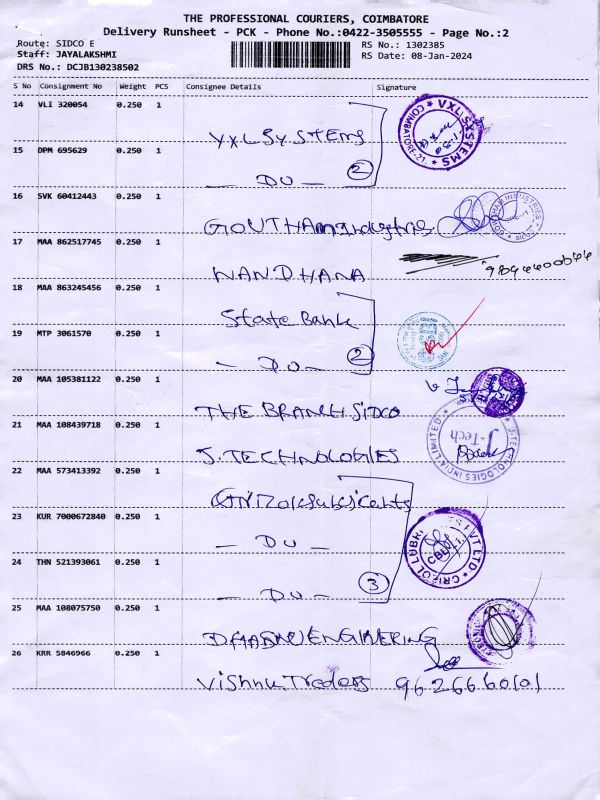 THE PROFESSIONAL COURIERS, COIMBATORE
Delivery Runsheet - PCK - Phone No.:0422-3505555 - Page No.:2
Route: SIDCO E
Staff: JAYALAKSHMI
DRS No.: DCJB130238502
RS No.: 1302385
RS Date: 08-Jan-2024
S No Consignment No Weight PCS Consignee Details Signature
14 VLI 320054 0.250 1
V.X.L SYSTEMS
VXL SYSTEMS
COIMBATORE-21.
15 DPM 695629 0.250 1
— DU — 2
16 SVK 60412443 0.250 1
GOUTHAM Industries
17 MAA 862517745 0.250 1
NANDHANA
18 MAA 863245456 0.250 1
State Bank
19 MTP 3061570 0.250 1
— DU — 2
20 MAA 105381122 0.250 1
THE BRANCH SIDCO
21 MAA 108439718 0.250 1
J. TECHNOLOGIES
J-TECHNOLOGIES INDIA LIMITED
J-Tech
22 MAA 573413392 0.250 1
23 KUR 7000672840 0.250 1
— DU —
CRIZOL LUBRI PVT LTD
24 THN 521393061 0.250 1
— DU — 3
25 MAA 108075750 0.250 1
ENGINEERING
26 KRR 5846966 0.250 1
Vishnu Traders 9626660101